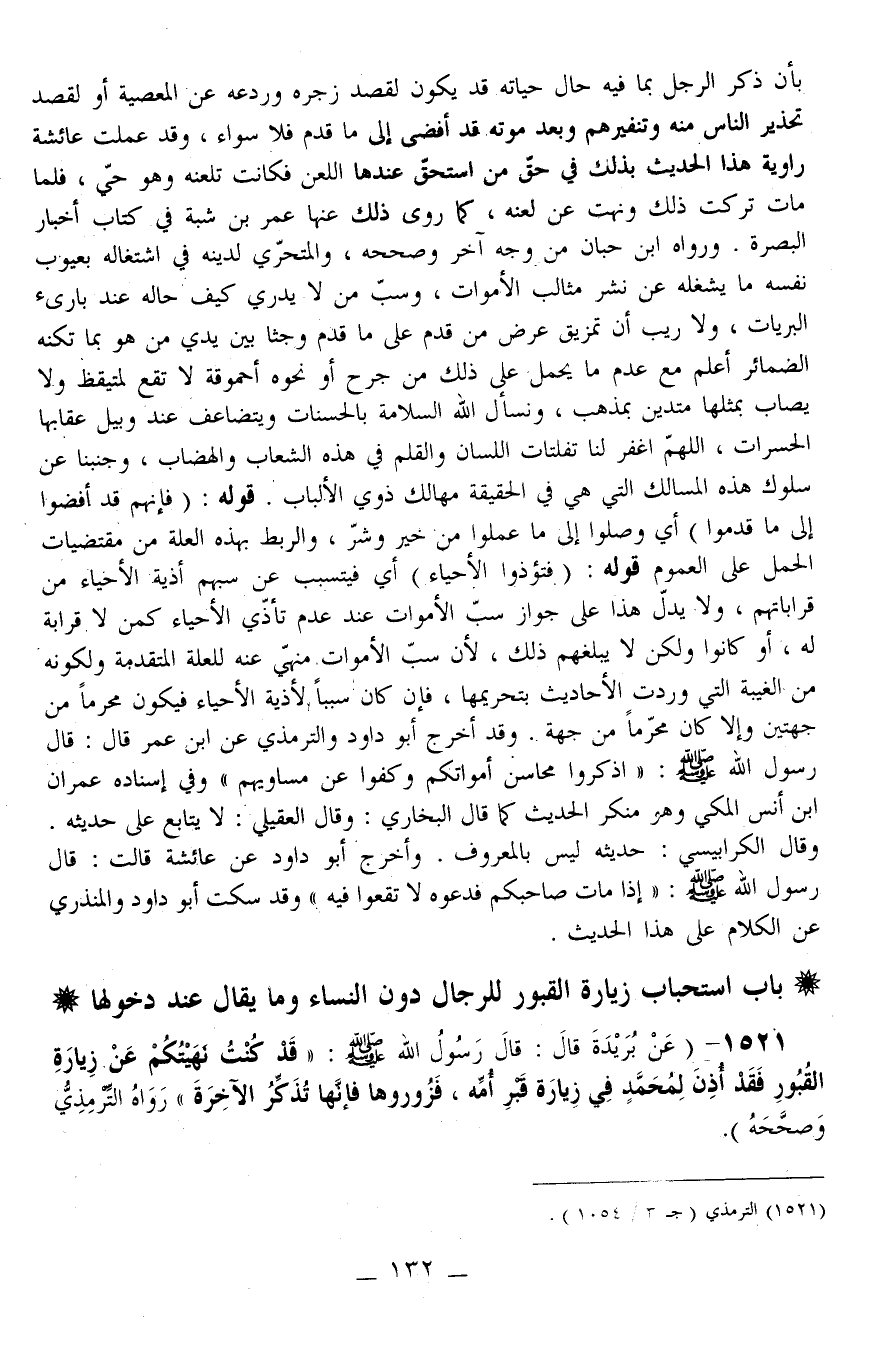 بأن ذكر الرجل بما فيه حال حياته قد يكون لقصد زجره وردعه عن المعصية أو لقصد
تحذير الناس منه وتنفيرهم وبعد موته قد أفضى إلى ما قدم فلا سواء ، وقد عملت عائشة
راوية هذا الحديث بذلك في حقّ من استحقّ عندها اللعن فكانت تلعنه وهو حيّ ، فلما
مات تركت ذلك ونهت عن لعنه ، كما روى ذلك عنها عمر بن شبة في كتاب أخبار
البصرة . ورواه ابن حبان من وجه آخر وصححه ، والمتحرّي لدينه في اشتغاله بعيوب
نفسه ما يشغله عن نشر مثالب الأموات ، وسبّ من لا يدري كيف حاله عند بارىء
البريات ، ولا ريب أن تمزيق عرض من قدم على ما قدم وجثا بين يدي من هو بما تكنه
الضمائر أعلم مع عدم ما يحمل على ذلك من جرح أو نحوه أحموقة لا تقع لمتيقظ ولا
يصاب بمثلها متدين بمذهب ، ونسأل الله السلامة بالحسنات ويتضاعف عند وبيل عقابها
الحسرات ، اللهمّ اغفر لنا تفلتات اللسان والقلم في هذه الشعاب والهضاب ، وجنبنا عن
سلوك هذه المسالك التي هي في الحقيقة مهالك ذوي الألباب . قوله : ( فإنهم قد أفضوا
إلى ما قدموا ) أي وصلوا إلى ما عملوا من خير وشرّ ، والربط بهذه العلة من مقتضيات
الحمل على العموم قوله : ( فتؤذوا الأحياء ) أي فيتسبب عن سبهم أذية الأحياء من
قراباتهم ، ولا يدلّ هذا على جواز سبّ الأموات عند عدم تأذّي الأحياء كمن لا قرابة
له ، أو كانوا ولكن لا يبلغهم ذلك ، لأن سبّ الأموات منهيّ عنه للعلة المتقدمة ولكونه
من الغيبة التي وردت الأحاديث بتحريمها ، فإن كان سبباً لأذية الأحياء فيكون محرماً من
جهتين وإلا كان محرّماً من جهة . وقد أخرج أبو داود والترمذي عن ابن عمر قال : قال
رسول الله ﷺ : « اذكروا محاسن أمواتكم وكفوا عن مساويهم » وفي إسناده عمران
ابن أنس المكي وهو منكر الحديث كما قال البخاري : وقال العقيلي : لا يتابع على حديثه .
وقال الكرابيسي : حديثه ليس بالمعروف . وأخرج أبو داود عن عائشة قالت : قال
رسول الله ﷺ : « إذا مات صاحبكم فدعوه لا تقعوا فيه » وقد سكت أبو داود والمنذري
عن الكلام على هذا الحديث .
باب استحباب زيارة القبور للرجال دون النساء وما يقال عند دخولها
١٥٢١ – ( عَنْ بُرَيْدَةَ قالَ : قالَ رَسُولُ الله ﷺ : « قَدْ كُنْتُ نَهَيْتُكُمْ عَنْ زِيارَةِ
القُبُورِ فَقَدْ أُذِنَ لِمُحَمَّدٍ فِي زِيارَة قَبْرِ أُمِّه ، فَزُوروها فإنَّها تُذَكِّرُ الآخِرَةَ » رَوَاهُ التِّرْمِذِيُّ
وَصحَّحَهُ ).
(١٥٢١) الترمذي ( جـ ٣ / ١٠٥٤ ) .
– ١٣٢ –